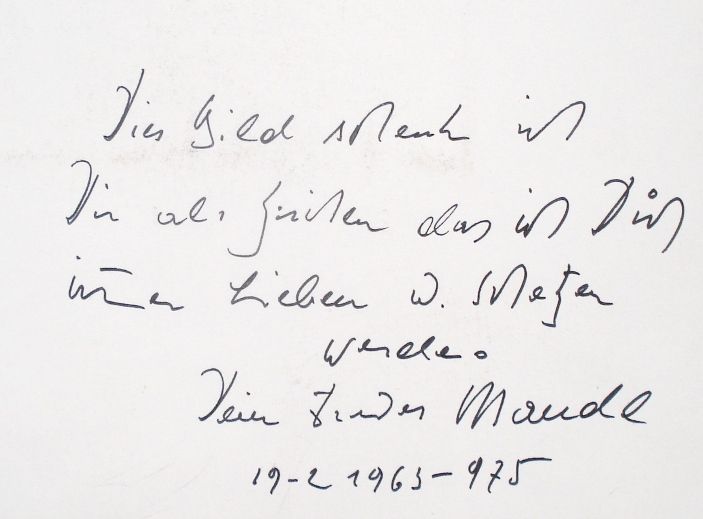 Dies Bild schenk ich
Dir als Zeichen das ich Dich
immer Lieben u. Schetzen
werde.
Dein Bruder Mandl
19-2 1963-975